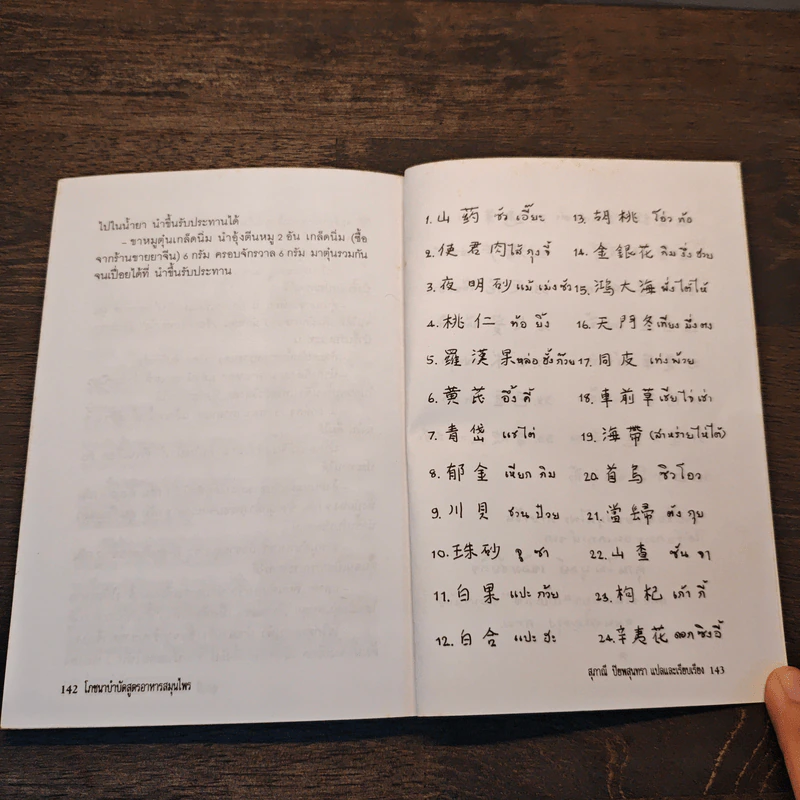 ไปในน้ำยา นำขึ้นรับประทานได้
- ขาหมูตุ๋นเกล็ดนิ่ม นำอุ้งตีนหมู 2 อัน เกล็ดนิ่ม (ซื้อ
จากร้านขายยาจีน) 6 กรัม ครอบจักรวาล 6 กรัม มาตุ๋นรวมกัน
จนเปื่อยได้ที่ นำขึ้นรับประทาน
142 โภชนาบำบัดสูตรอาหารสมุนไพร
1. 山药 ซัว เอี๊ยะ
2. 使君肉 ไส้ กุง จี้
3. 夜明砂 แม้ เม่ง ซัว
4. 桃仁 ท้อ ยิ้ง
5. 羅漢果 หล่อ ฮั้ง ก๊วย
6. 黄芪 อึ้ง คี้
7. 青岱 แชไต่
8. 郁金 เหียก กิม
9. 川貝 ชวน ป้วย
10. 珠砂 จู ซา
11. 白果 แปะ ก้วย
12. 白合 แปะ ฮะ
13. 胡桃 โอ่ว ท้อ
14. 金銀花 กิม งิ่ง ฮวย
15. 鴻大海 พั่งไต้ไห้
16. 天門冬 เทียง มึ่ง ตง
17. 同皮 เท่ง พ้วย
18. 車前草 เชีย ไช่ เช่า
19. 海帶 (สาหร่ายไห่ไต้)
20. 首烏 ซิว โอว
21. 當歸 ตัง กุย
22. 山查 ซัน จา
23. 枸杞 เก๋า กี้
24. 辛夷花 ดอก ซิงอี๊
สุภาณี ปิยพสุนทรา แปลและเรียบเรียง 143